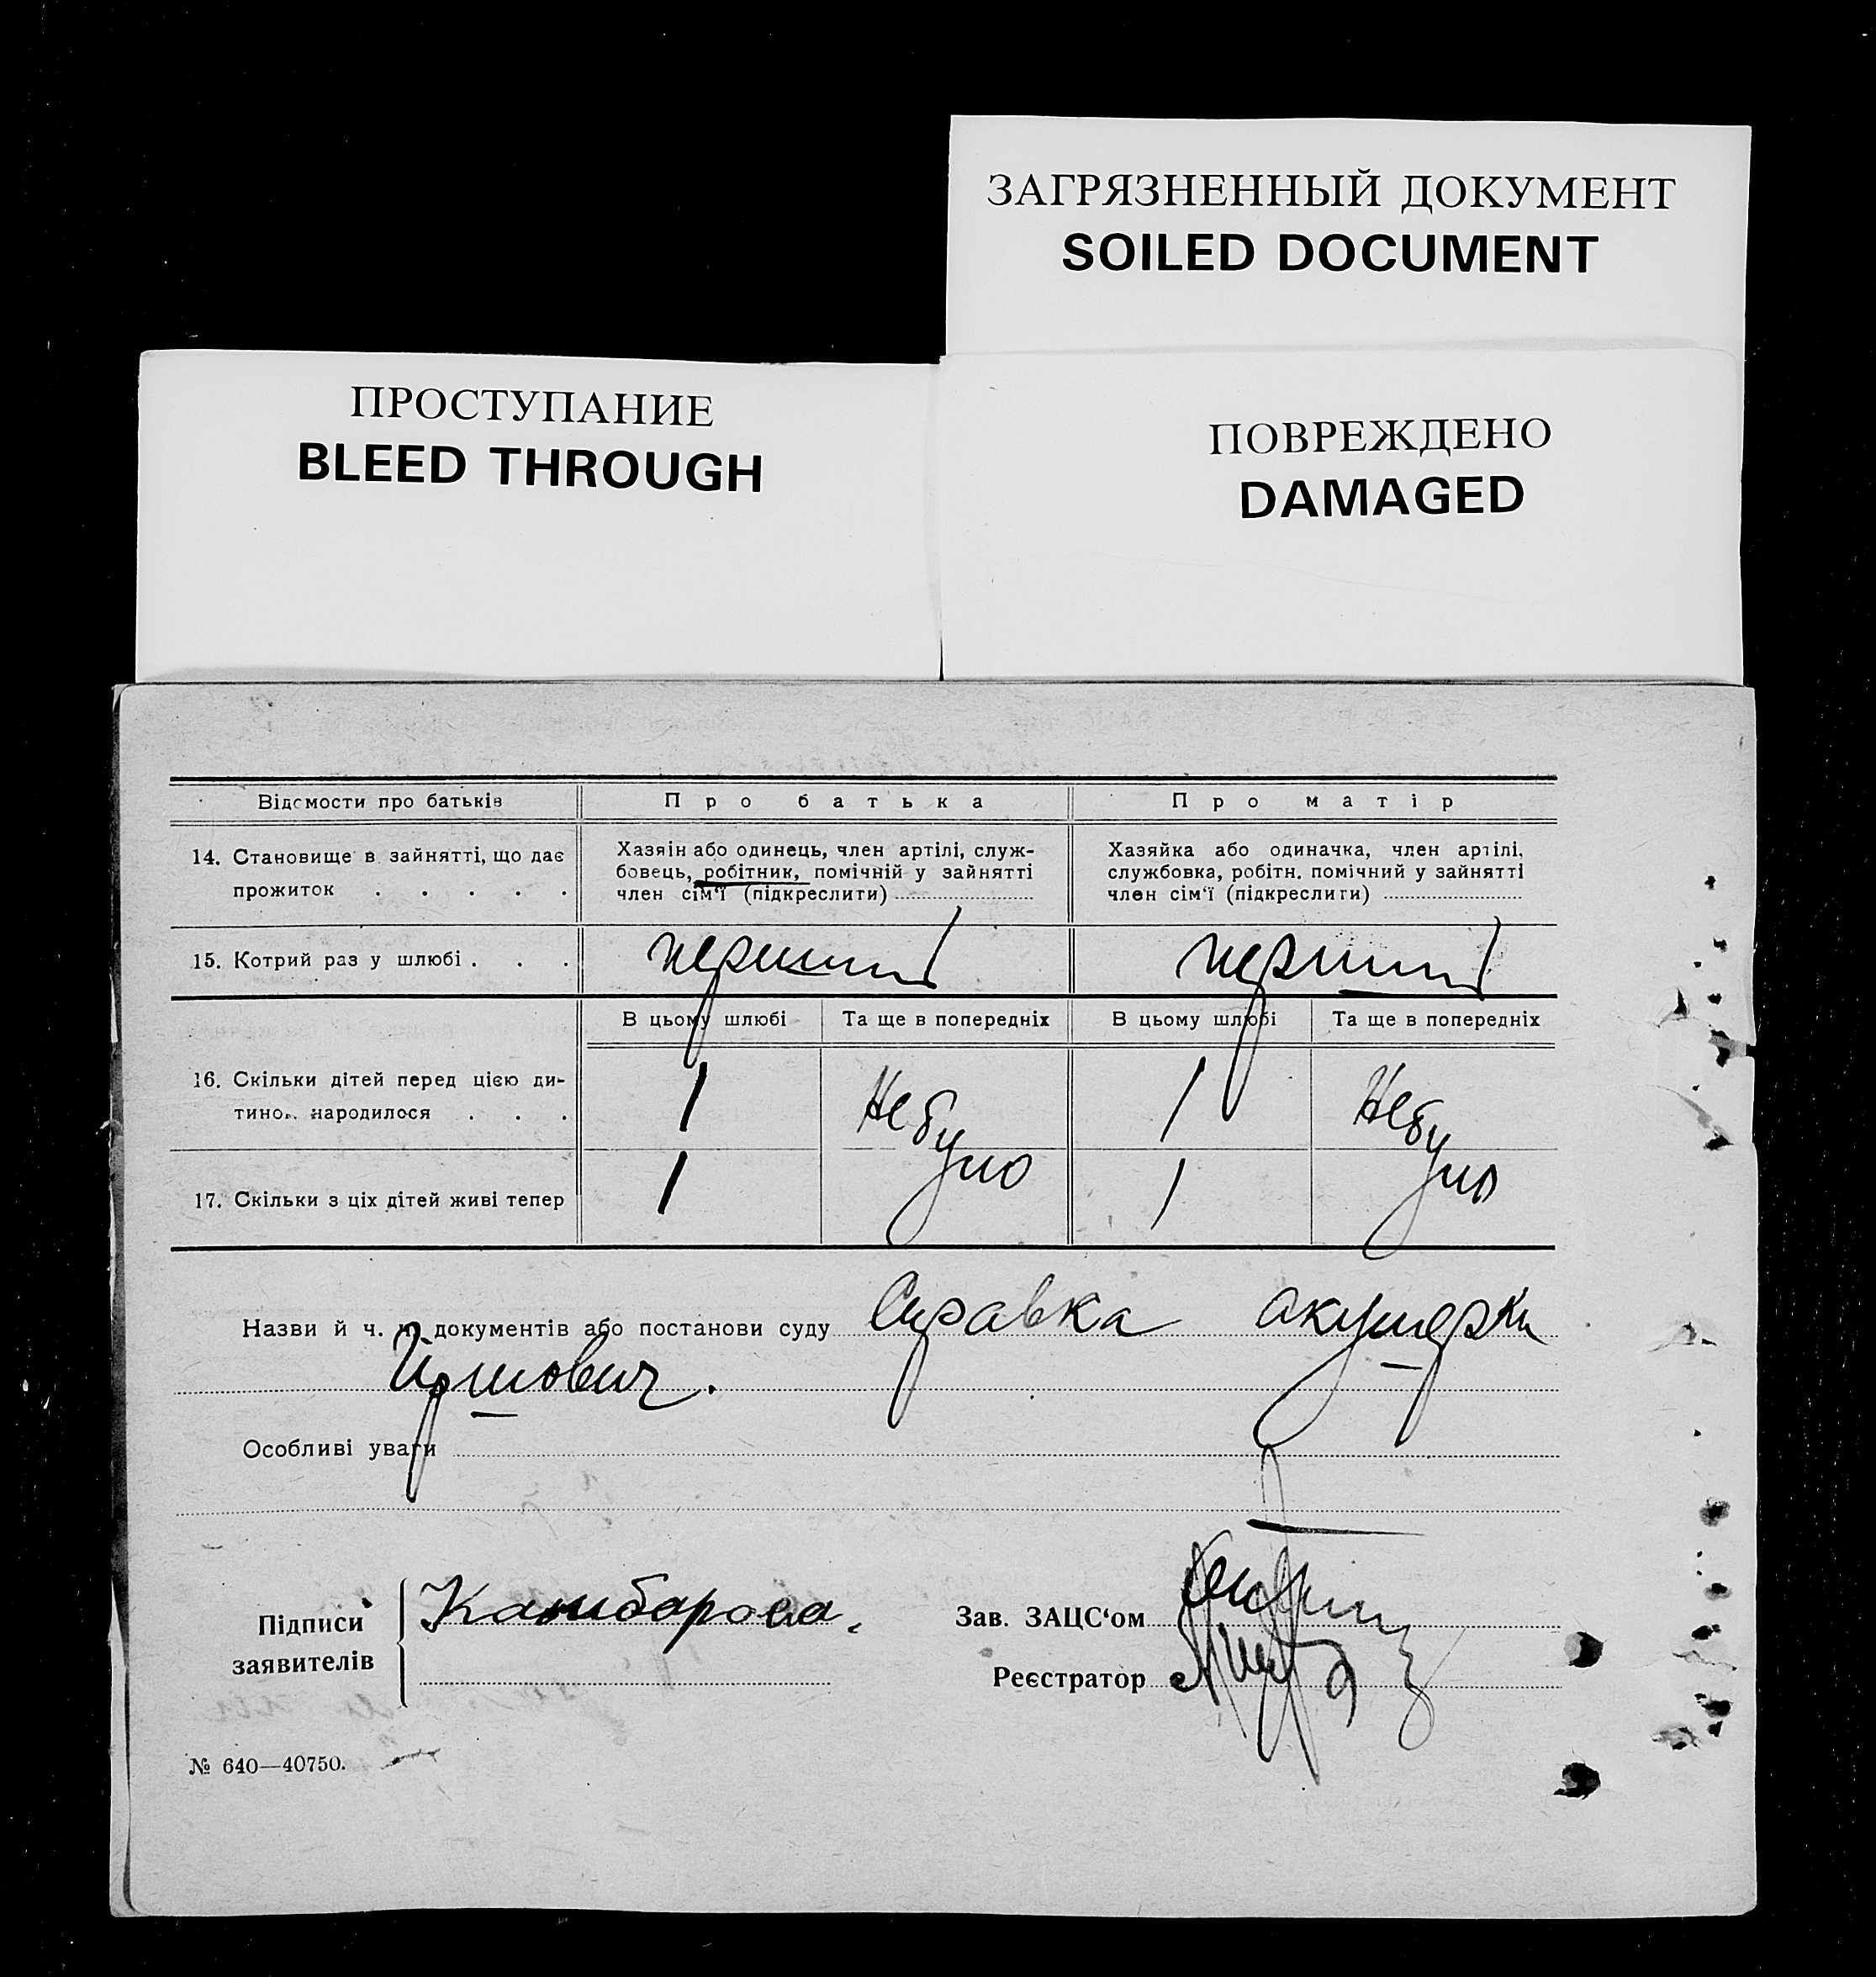 ЗАГРЯЗНЕННЫЙ ДОКУМЕНТ
SOILED DOCUMENT
ПРОСТУПАНИЕ
BLEED THROUGH
ПОВРЕЖДЕНО
DAMAGED
Відомости про батьків
Про батька
Про матір
14. Становище в зайнятті, що дає
прожиток . . . . .
Хазяїн або одинець, член артілі, служ-
бовець, робітник, помічній у зайнятті
член сім'ї (підкреслити)
Хазяйка або одиначка, член артілі,
службовка, робітн. помічний у зайнятті
член сім'ї (підкреслити)
15. Котрий раз у шлюбі . . .
перший
перший
В цьому шлюбі
Та ще в попередніх
В цьому шлюбі
Та ще в попередніх
16. Скільки дітей перед цією ди-
тиною народилося . . .
1
Небуло
1
Небуло
17. Скільки з ціх дітей живі тепер
1
1
Назви й ч. ч. документів або постанови суду Справка акушерки
Особливі уваги
Підписи
заявителів
Камбарова.
Зав. ЗАЦС'ом
Реєстратор
№ 640—40750.